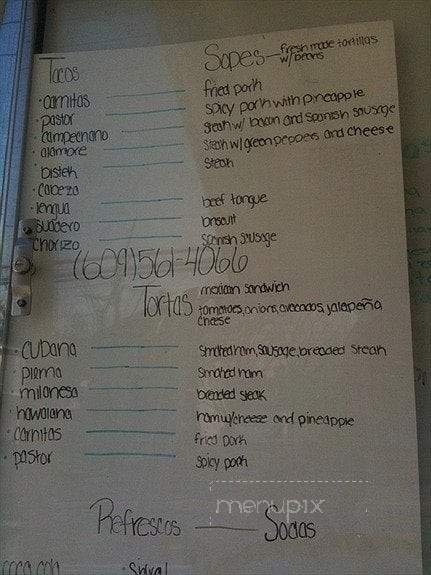 Tacos
Sopes - fresh made tortillas
w/beans
· carnitas fried pork
· pastor spicy pork with pineapple
· campechano steak w/ bacon and spanish sausage
· alambre steak w/ green peppers and cheese
· bistek steak
· cabeza
· lengua beef tongue
· suadero briscuit
chorizo spanish sausage
(609)561-4066
Tortas mexican sandwich
tomatoes, onions, avocados, jalapeña
cheese
· cubana smoked ham, sausage, breaded steak
· pierna smoked ham
· milanesa breaded steak
· hawaiana ham w/cheese and pineapple
· carnitas fried pork
· pastor spicy pork
menupix
Refrescos — Sodas